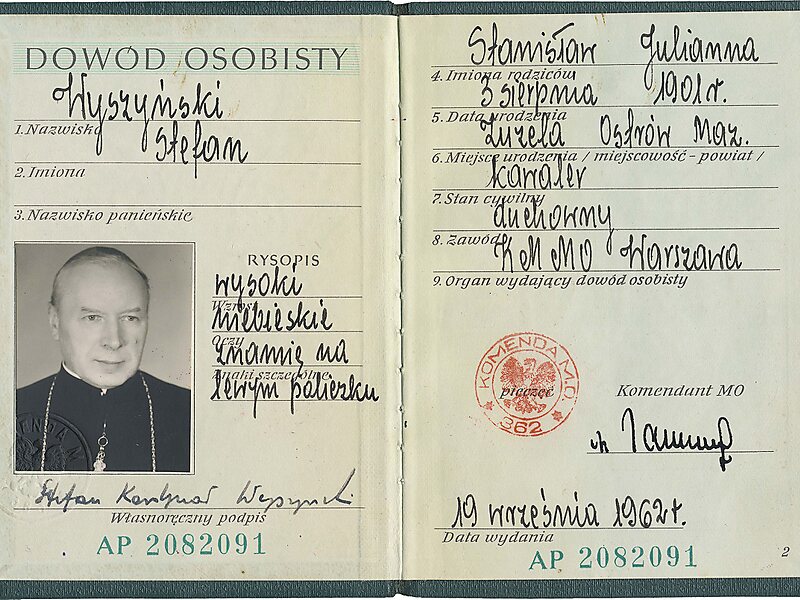 DOWÓD OSOBISTY
Wyszyński
1. Nazwisko
Stefan
2. Imiona
3. Nazwisko panieńskie
RYSOPIS
wysoki
Wzrost
niebieskie
Oczy
znamię na
Znaki szczególne
lewym policzku
Stefan Kardynał Wyszyński
Własnoręczny podpis
AP 2082091
Stanisław Julianna
4. Imiona rodziców
3 sierpnia 1901 r.
5. Data urodzenia
Zuzela Ostrów Maz.
6. Miejsce urodzenia / miejscowość - powiat /
kawaler
7. Stan cywilny
duchowny
8. Zawód
KM MO Warszawa
9. Organ wydający dowód osobisty
KOMENDA M.O.
pieczęć
362
Komendant MO
19 września 1962 r.
Data wydania
AP 2082091
2